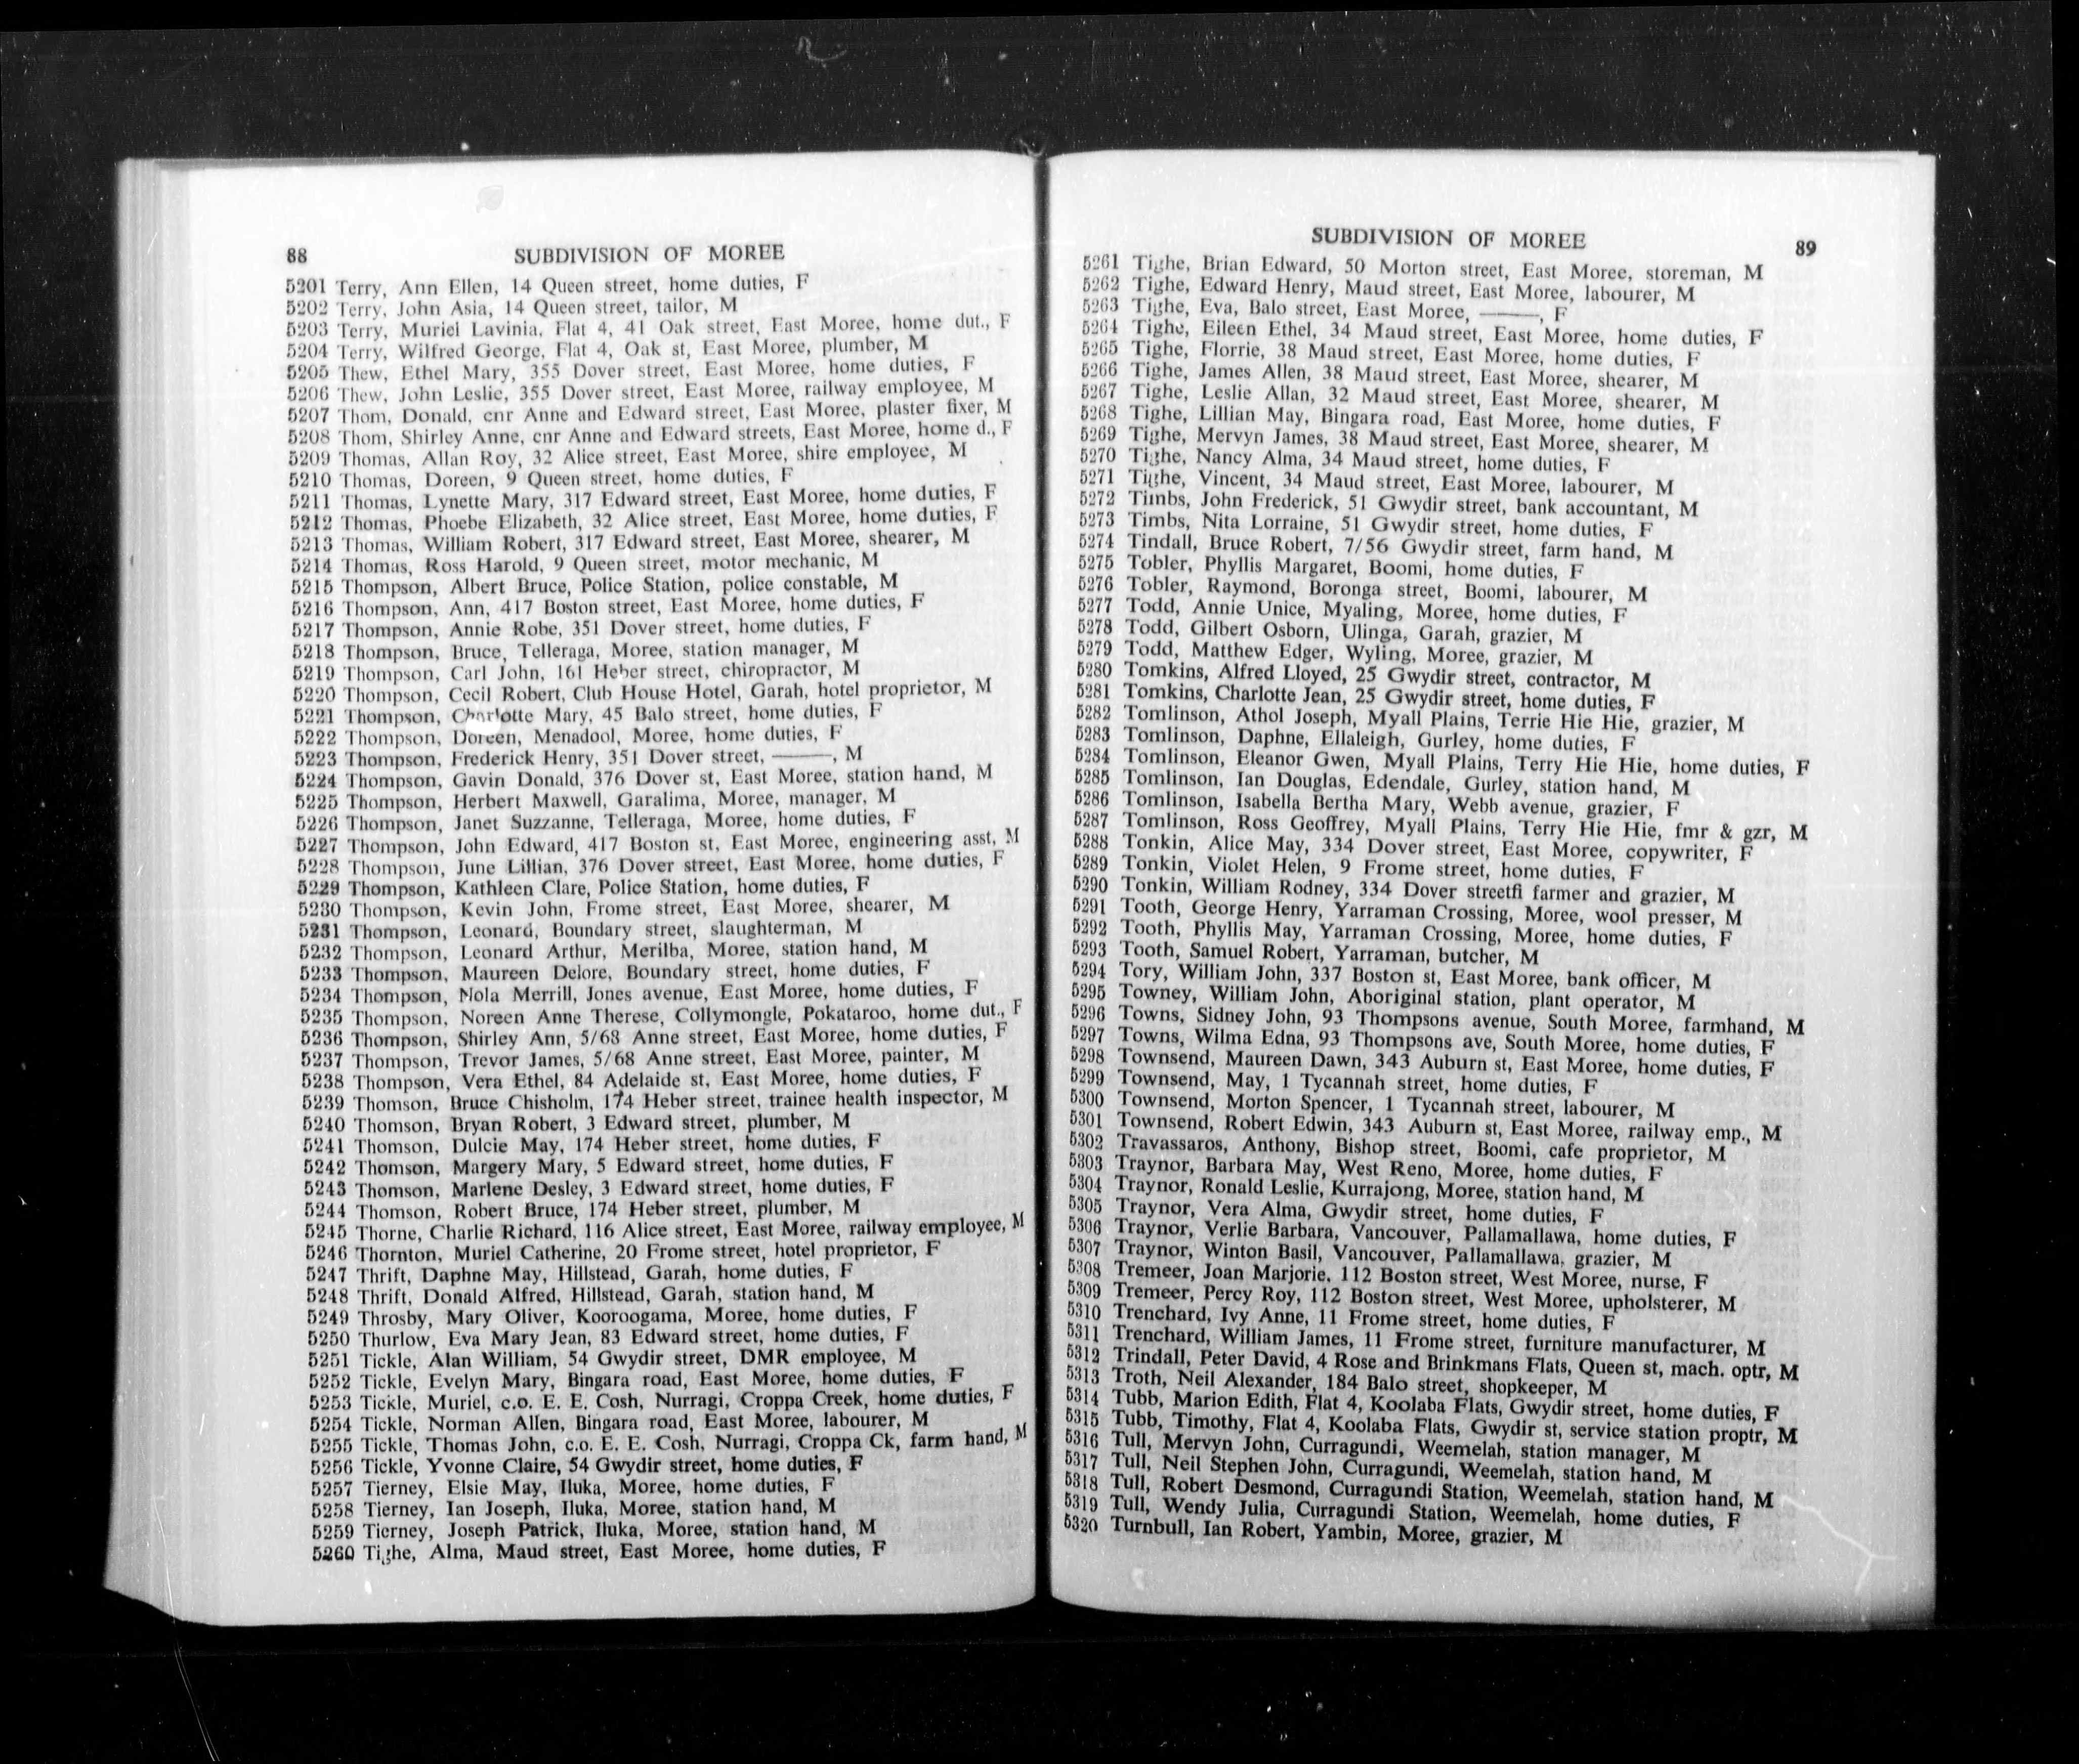 88 SUBDIVISION OF MOREE
5201 Terry, Ann Ellen, 14 Queen street, home duties, F
5202 Terry, John Asia, 14 Queen street, tailor, M
5203 Terry, Muriel Lavinia, Flat 4, 41 Oak street, East Moree, home dut., F
5204 Terry, Wilfred George, Flat 4, Oak st, East Moree, plumber, M
5205 Thew, Ethel Mary, 355 Dover street, East Moree, home duties, F
5206 Thew, John Leslie, 355 Dover street, East Moree, railway employee, M
5207 Thom, Donald, cnr Anne and Edward street, East Moree, plaster fixer, M
5208 Thom, Shirley Anne, cnr Anne and Edward streets, East Moree, home d., F
5209 Thomas, Allan Roy, 32 Alice street, East Moree, shire employee, M
5210 Thomas, Doreen, 9 Queen street, home duties, F
5211 Thomas, Lynette Mary, 317 Edward street, East Moree, home duties, F
5212 Thomas, Phoebe Elizabeth, 32 Alice street, East Moree, home duties, F
5213 Thomas, William Robert, 317 Edward street, East Moree, shearer, M
5214 Thomas, Ross Harold, 9 Queen street, motor mechanic, M
5215 Thompson, Albert Bruce, Police Station, police constable, M
5216 Thompson, Ann, 417 Boston street, East Moree, home duties, F
5217 Thompson, Annie Robe, 351 Dover street, home duties, F
5218 Thompson, Bruce, Telleraga, Moree, station manager, M
5219 Thompson, Carl John, 161 Heber street, chiropractor, M
5220 Thompson, Cecil Robert, Club House Hotel, Garah, hotel proprietor, M
5221 Thompson, Charlotte Mary, 45 Balo street, home duties, F
5222 Thompson, Doreen, Menadool, Moree, home duties, F
5223 Thompson, Frederick Henry, 351 Dover street, ———, M
5224 Thompson, Gavin Donald, 376 Dover st, East Moree, station hand, M
5225 Thompson, Herbert Maxwell, Garalima, Moree, manager, M
5226 Thompson, Janet Suzzanne, Telleraga, Moree, home duties, F
5227 Thompson, John Edward, 417 Boston st, East Moree, engineering asst, M
5228 Thompson, June Lillian, 376 Dover street, East Moree, home duties, F
5229 Thompson, Kathleen Clare, Police Station, home duties, F
5230 Thompson, Kevin John, Frome street, East Moree, shearer, M
5231 Thompson, Leonard, Boundary street, slaughterman, M
5232 Thompson, Leonard Arthur, Merilba, Moree, station hand, M
5233 Thompson, Maureen Delore, Boundary street, home duties, F
5234 Thompson, Nola Merrill, Jones avenue, East Moree, home duties, F
5235 Thompson, Noreen Anne Therese, Collymongle, Pokataroo, home dut., F
5236 Thompson, Shirley Ann, 5/68 Anne street, East Moree, home duties, F
5237 Thompson, Trevor James, 5/68 Anne street, East Moree, painter, M
5238 Thompson, Vera Ethel, 84 Adelaide st, East Moree, home duties, F
5239 Thomson, Bruce Chisholm, 174 Heber street, trainee health inspector, M
5240 Thomson, Bryan Robert, 3 Edward street, plumber, M
5241 Thomson, Dulcie May, 174 Heber street, home duties, F
5242 Thomson, Margery Mary, 5 Edward street, home duties, F
5243 Thomson, Marlene Desley, 3 Edward street, home duties, F
5244 Thomson, Robert Bruce, 174 Heber street, plumber, M
5245 Thorne, Charlie Richard, 116 Alice street, East Moree, railway employee, M
5246 Thornton, Muriel Catherine, 20 Frome street, hotel proprietor, F
5247 Thrift, Daphne May, Hillstead, Garah, home duties, F
5248 Thrift, Donald Alfred, Hillstead, Garah, station hand, M
5249 Throsby, Mary Oliver, Kooroogama, Moree, home duties, F
5250 Thurlow, Eva Mary Jean, 83 Edward street, home duties, F
5251 Tickle, Alan William, 54 Gwydir street, DMR employee, M
5252 Tickle, Evelyn Mary, Bingara road, East Moree, home duties, F
5253 Tickle, Muriel, c.o. E. E. Cosh, Nurragi, Croppa Creek, home duties, F
5254 Tickle, Norman Allen, Bingara road, East Moree, labourer, M
5255 Tickle, Thomas John, c.o. E. E. Cosh, Nurragi, Croppa Ck, farm hand, M
5256 Tickle, Yvonne Claire, 54 Gwydir street, home duties, F
5257 Tierney, Elsie May, Iluka, Moree, home duties, F
5258 Tierney, Ian Joseph, Iluka, Moree, station hand, M
5259 Tierney, Joseph Patrick, Iluka, Moree, station hand, M
5260 Tighe, Alma, Maud street, East Moree, home duties, F
SUBDIVISION OF MOREE 89
5261 Tighe, Brian Edward, 50 Morton street, East Moree, storeman, M
5262 Tighe, Edward Henry, Maud street, East Moree, labourer, M
5263 Tighe, Eva, Balo street, East Moree, ———, F
5264 Tighe, Eileen Ethel, 34 Maud street, East Moree, home duties, F
5265 Tighe, Florrie, 38 Maud street, East Moree, home duties, F
5266 Tighe, James Allen, 38 Maud street, East Moree, shearer, M
5267 Tighe, Leslie Allan, 32 Maud street, East Moree, shearer, M
5268 Tighe, Lillian May, Bingara road, East Moree, home duties, F
5269 Tighe, Mervyn James, 38 Maud street, East Moree, shearer, M
5270 Tighe, Nancy Alma, 34 Maud street, home duties, F
5271 Tighe, Vincent, 34 Maud street, East Moree, labourer, M
5272 Timbs, John Frederick, 51 Gwydir street, bank accountant, M
5273 Timbs, Nita Lorraine, 51 Gwydir street, home duties, F
5274 Tindall, Bruce Robert, 7/56 Gwydir street, farm hand, M
5275 Tobler, Phyllis Margaret, Boomi, home duties, F
5276 Tobler, Raymond, Boronga street, Boomi, labourer, M
5277 Todd, Annie Unice, Myaling, Moree, home duties, F
5278 Todd, Gilbert Osborn, Ulinga, Garah, grazier, M
5279 Todd, Matthew Edger, Wyling, Moree, grazier, M
5280 Tomkins, Alfred Lloyed, 25 Gwydir street, contractor, M
5281 Tomkins, Charlotte Jean, 25 Gwydir street, home duties, F
5282 Tomlinson, Athol Joseph, Myall Plains, Terrie Hie Hie, grazier, M
5283 Tomlinson, Daphne, Ellaleigh, Gurley, home duties, F
5284 Tomlinson, Eleanor Gwen, Myall Plains, Terry Hie Hie, home duties, F
5285 Tomlinson, Ian Douglas, Edendale, Gurley, station hand, M
5286 Tomlinson, Isabella Bertha Mary, Webb avenue, grazier, F
5287 Tomlinson, Ross Geoffrey, Myall Plains, Terry Hie Hie, fmr & gzr, M
5288 Tonkin, Alice May, 334 Dover street, East Moree, copywriter, F
5289 Tonkin, Violet Helen, 9 Frome street, home duties, F
5290 Tonkin, William Rodney, 334 Dover streetfi farmer and grazier, M
5291 Tooth, George Henry, Yarraman Crossing, Moree, wool presser, M
5292 Tooth, Phyllis May, Yarraman Crossing, Moree, home duties, F
5293 Tooth, Samuel Robert, Yarraman, butcher, M
5294 Tory, William John, 337 Boston st, East Moree, bank officer, M
5295 Towney, William John, Aboriginal station, plant operator, M
5296 Towns, Sidney John, 93 Thompsons avenue, South Moree, farmhand, M
5297 Towns, Wilma Edna, 93 Thompsons ave, South Moree, home duties, F
5298 Townsend, Maureen Dawn, 343 Auburn st, East Moree, home duties, F
5299 Townsend, May, 1 Tycannah street, home duties, F
5300 Townsend, Morton Spencer, 1 Tycannah street, labourer, M
5301 Townsend, Robert Edwin, 343 Auburn st, East Moree, railway emp., M
5302 Travassaros, Anthony, Bishop street, Boomi, cafe proprietor, M
5303 Traynor, Barbara May, West Reno, Moree, home duties, F
5304 Traynor, Ronald Leslie, Kurrajong, Moree, station hand, M
5305 Traynor, Vera Alma, Gwydir street, home duties, F
5306 Traynor, Verlie Barbara, Vancouver, Pallamallawa, home duties, F
5307 Traynor, Winton Basil, Vancouver, Pallamallawa, grazier, M
5308 Tremeer, Joan Marjorie, 112 Boston street, West Moree, nurse, F
5309 Tremeer, Percy Roy, 112 Boston street, West Moree, upholsterer, M
5310 Trenchard, Ivy Anne, 11 Frome street, home duties, F
5311 Trenchard, William James, 11 Frome street, furniture manufacturer, M
5312 Trindall, Peter David, 4 Rose and Brinkmans Flats, Queen st, mach. optr, M
5313 Troth, Neil Alexander, 184 Balo street, shopkeeper, M
5314 Tubb, Marion Edith, Flat 4, Koolaba Flats, Gwydir street, home duties, F
5315 Tubb, Timothy, Flat 4, Koolaba Flats, Gwydir st, service station proptr, M
5316 Tull, Mervyn John, Curragundi, Weemelah, station manager, M
5317 Tull, Neil Stephen John, Curragundi, Weemelah, station hand, M
5318 Tull, Robert Desmond, Curragundi Station, Weemelah, station hand, M
5319 Tull, Wendy Julia, Curragundi Station, Weemelah, home duties, F
5320 Turnbull, Ian Robert, Yambin, Moree, grazier, M